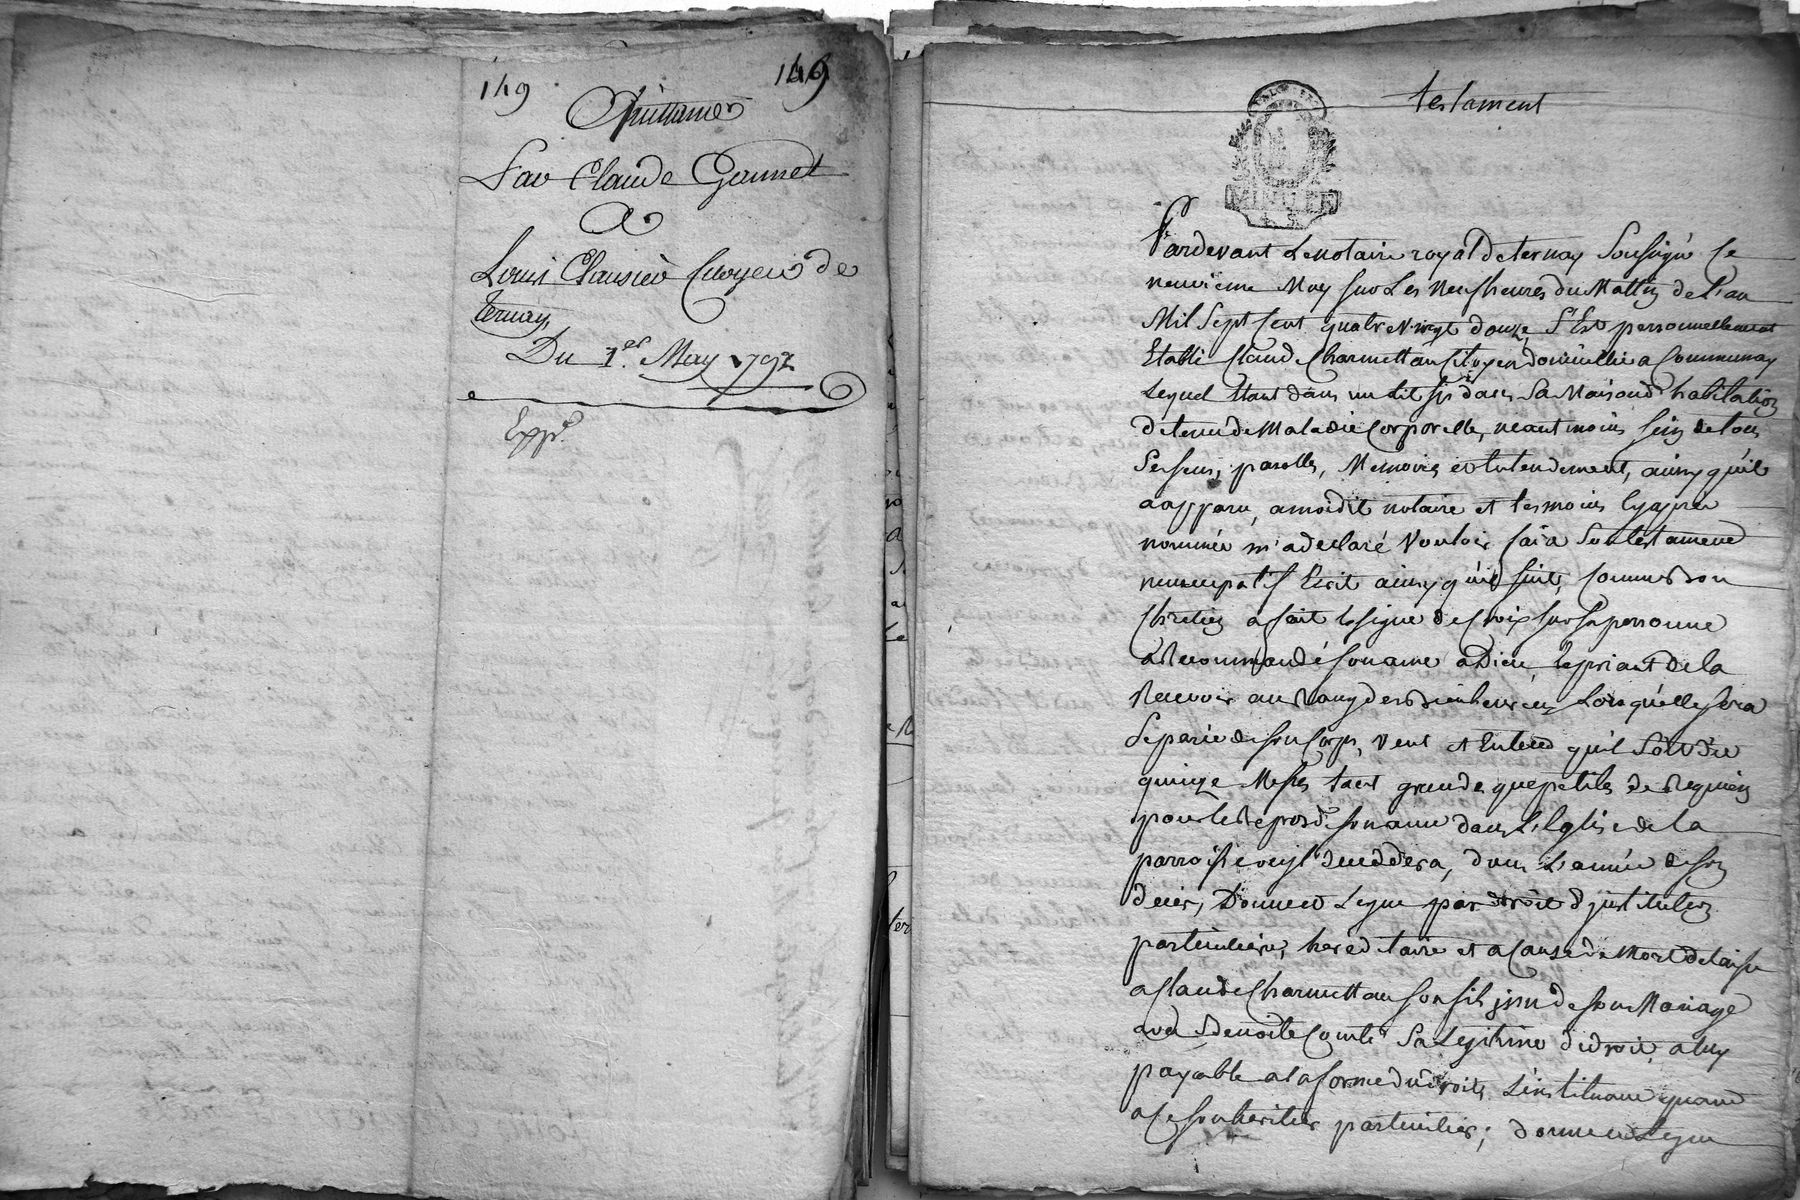 149
149
Quittance
Par Claude Gonnet
A
Louis Clausier Citoyen de
ternay,
Du 1.er May 1792
Expé.
testament
MINUTE
4. S.
Pardevant Le notaire royal de ternay soussigné le
neuvieme May sur Les Neuf heures du Mattin de l'an
Mil Sept Cent quatre vingt douze, S'Est personnellement
Etabli Claude Charmettan Citoyen domicillié a Communay
Lequel Etant dans un Lit sis dans Sa Maison d'habitation
detenu de Maladie Corporelle, neantmoins sein de tous
Ses sens, parolle, Memoire et Entendement, ainsy qu'il
a apparu, a moidit notaire et tesmoins cy apres
nommés m'a declaré Vouloir faire Son testament
nuncupatif Ecrit ainsy qu'il suit, Comme bon
Chretien a fait le signe de Croix sur sa personne
a Recommandé son ame a Dieu, le priant de la
Recevoir au Rang des bienheureux Lorsqu'elle sera
Separée de son Corps, Veut et Entend qu'il soit dit
quinze Messes tant grandes que petites de Requiem
pour le Repos de son ame dans L'Eglise de la
parroisse ou il decedera, dans L'année de son
deces, Donne et Legue par droit d'institution
particuliere, hereditaire et a Cause de Mort delaisse
a Claude Charmettan son fils jssu de son Mariage
avec Benoite Comte Sa Legitime de droit, a luy
payable a la forme du droit, L'instituant quand
a Ce son heritier particulier; donne et Legue